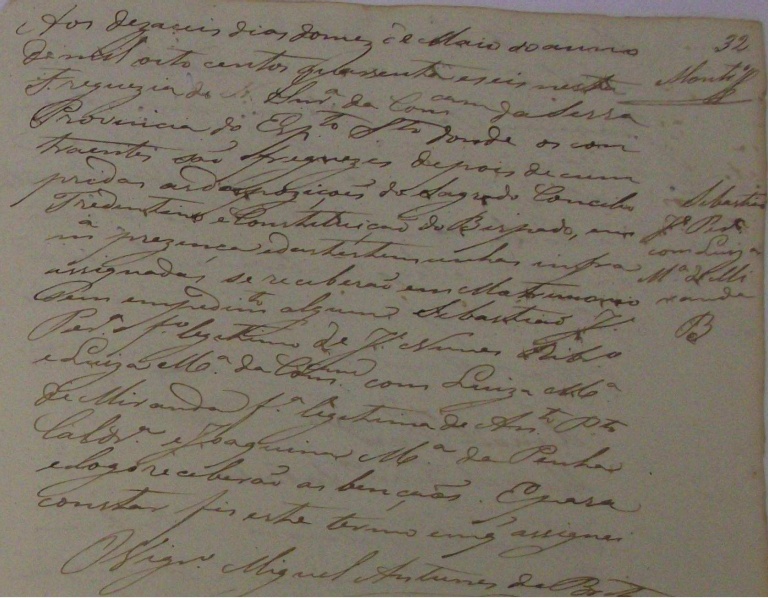 Aos dezaceis dias domez de Maio do anno
de mil oito centos quarenta e seis nesta
Freguezia de N. Snrª. da Concam da Serra
Provincia do Esp.to Sto donde os con
traentes são freguezes depois de cum
pridas as despoziçoẽs do Sagrado Concilio
Tredentino e Constituiçao do Bispado, em
mª prezença e das testemunhas infra
assignadas se receberão em Matrimonio
Sem empedimto algum Sebastião Je
Perª. fo legitimo de Je Nunes Ribo
e Luiza Mª. da Concam com Luiza Mª
de Miranda fª legitima de Anto Pto
Caldrª. e Joaquina Mª da Penha
e logo receberão as bençoãs. E para
constar fis este termo emq assignei
O Vigrº. Miguel Antunes de Brito
32
Sebastião
Je Perª
com Luiza
Mª de Mi
randa